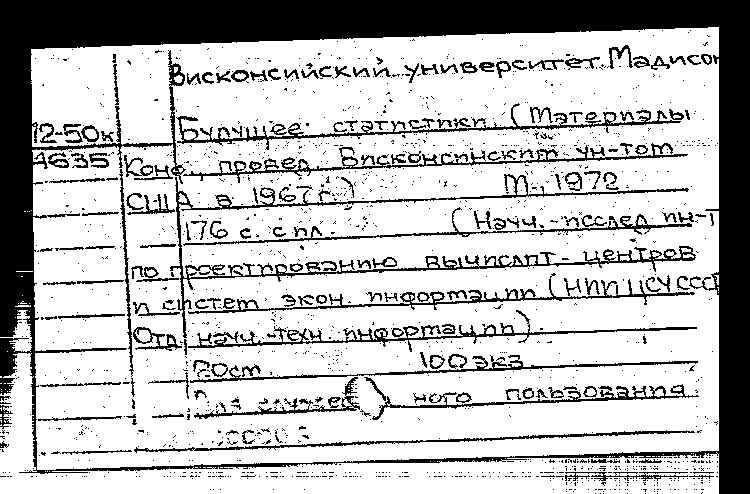 Висконсийский университет. Мадисон
12-50к Будущее статистики. (Материалы
4635 Конф., провед. Висконсинским ун-том
США в 1967 г.) М., 1972
176 с. с ил. (Науч.-исслед ин-т
по проектированию вычислит. центров
и систем экон. информации (НИИ ЦСУ СССР
Отд. науч.-техн. информации).
20см. 100 экз.
Для служебного пользования